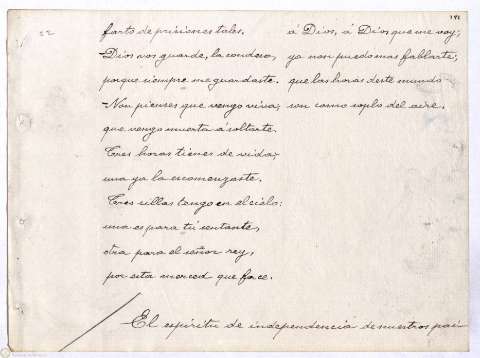 22
191
farto de prisiones tales.
Dios vos guarde, la condesa,
porque siempre me guardaste.
Non pienses que vengo viva,
que vengo muerta á soltarte.
Tres horas tienes de vida,
una ya la escomenzaste.
Tres sillas tengo en el cielo:
una es para tú sentarte,
otra para el señor rey,
por esta merced que face.
á Dios, á Dios que me voy;
ya non puedo mas fablarte,
que las horas deste mundo
son como soplo del aire.
El espíritu de independencia de nuestros pai-